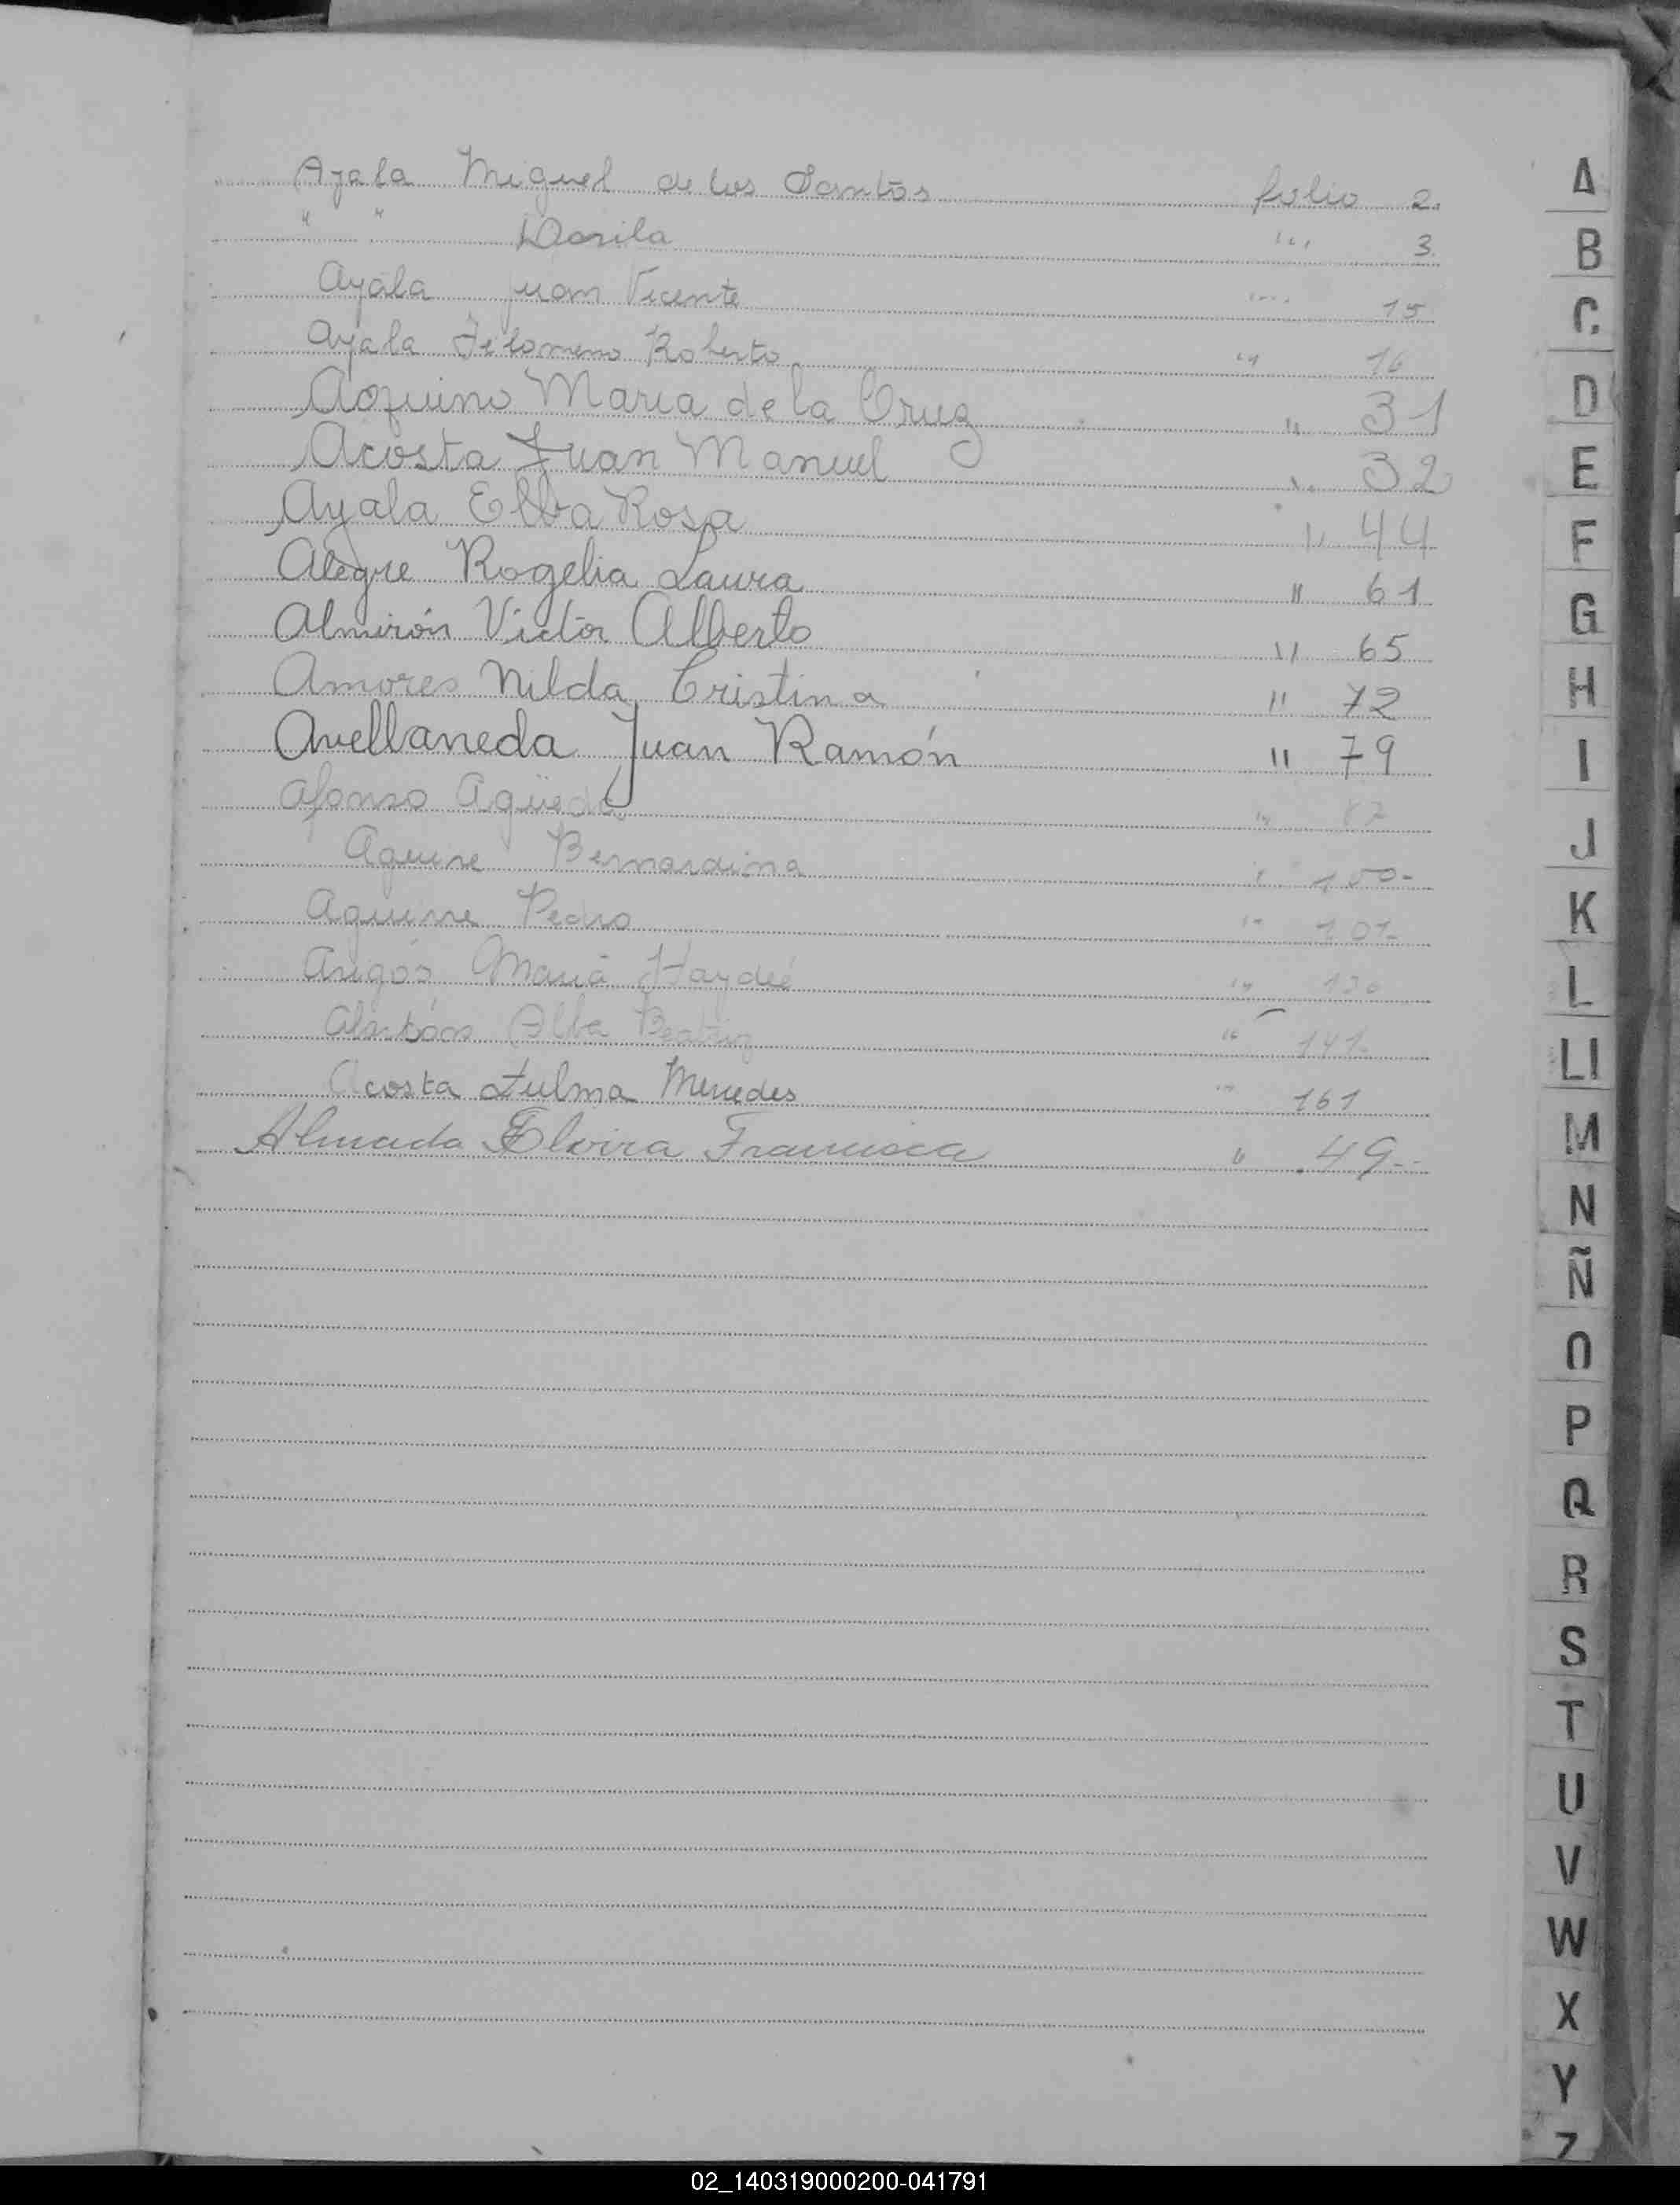 Ayala Miguel de los Santos folio 2.
" " Dorila " 3.
Ayala Juan Vicente " 15
Ayala Filomeno Roberto " 16
Aquino Maria de la Cruz " 31
Acosta Juan Manuel " 32
Ayala Elba Rosa " 44
Alegre Rogelia Laura " 61
Almirón Victor Alberto " 65
Amores Nilda Cristina " 72
Avellaneda Juan Ramón " 79
Afonso Agüeda " 87
Aguirre Bernardina " 100-
Aguirre Pedro " 101-
María Haydeé " 136
Alba Beatriz " 141-
Acosta Zulma Mercedes " 161
Almada Elvira Francisca " 49-
A
B
C
D
E
F
G
H
I
J
K
L
Ll
M
N
Ñ
O
P
Q
R
S
T
U
V
W
X
Y
Z
02_140319000200-041791